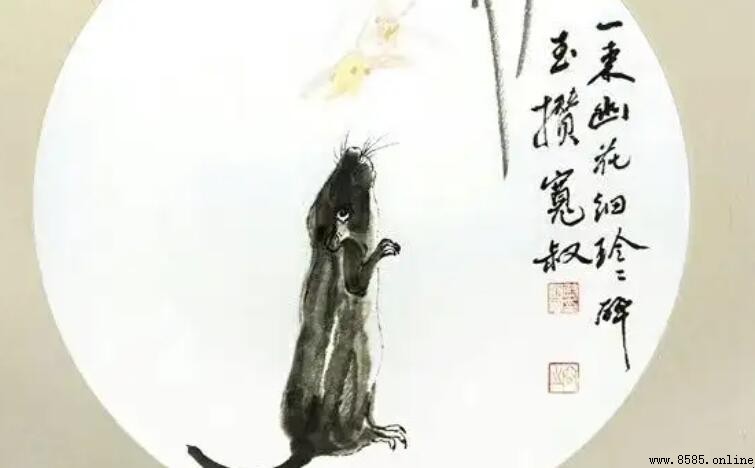 一束幽花細玲〻碎
玉攢 寬叔
www.8585.online